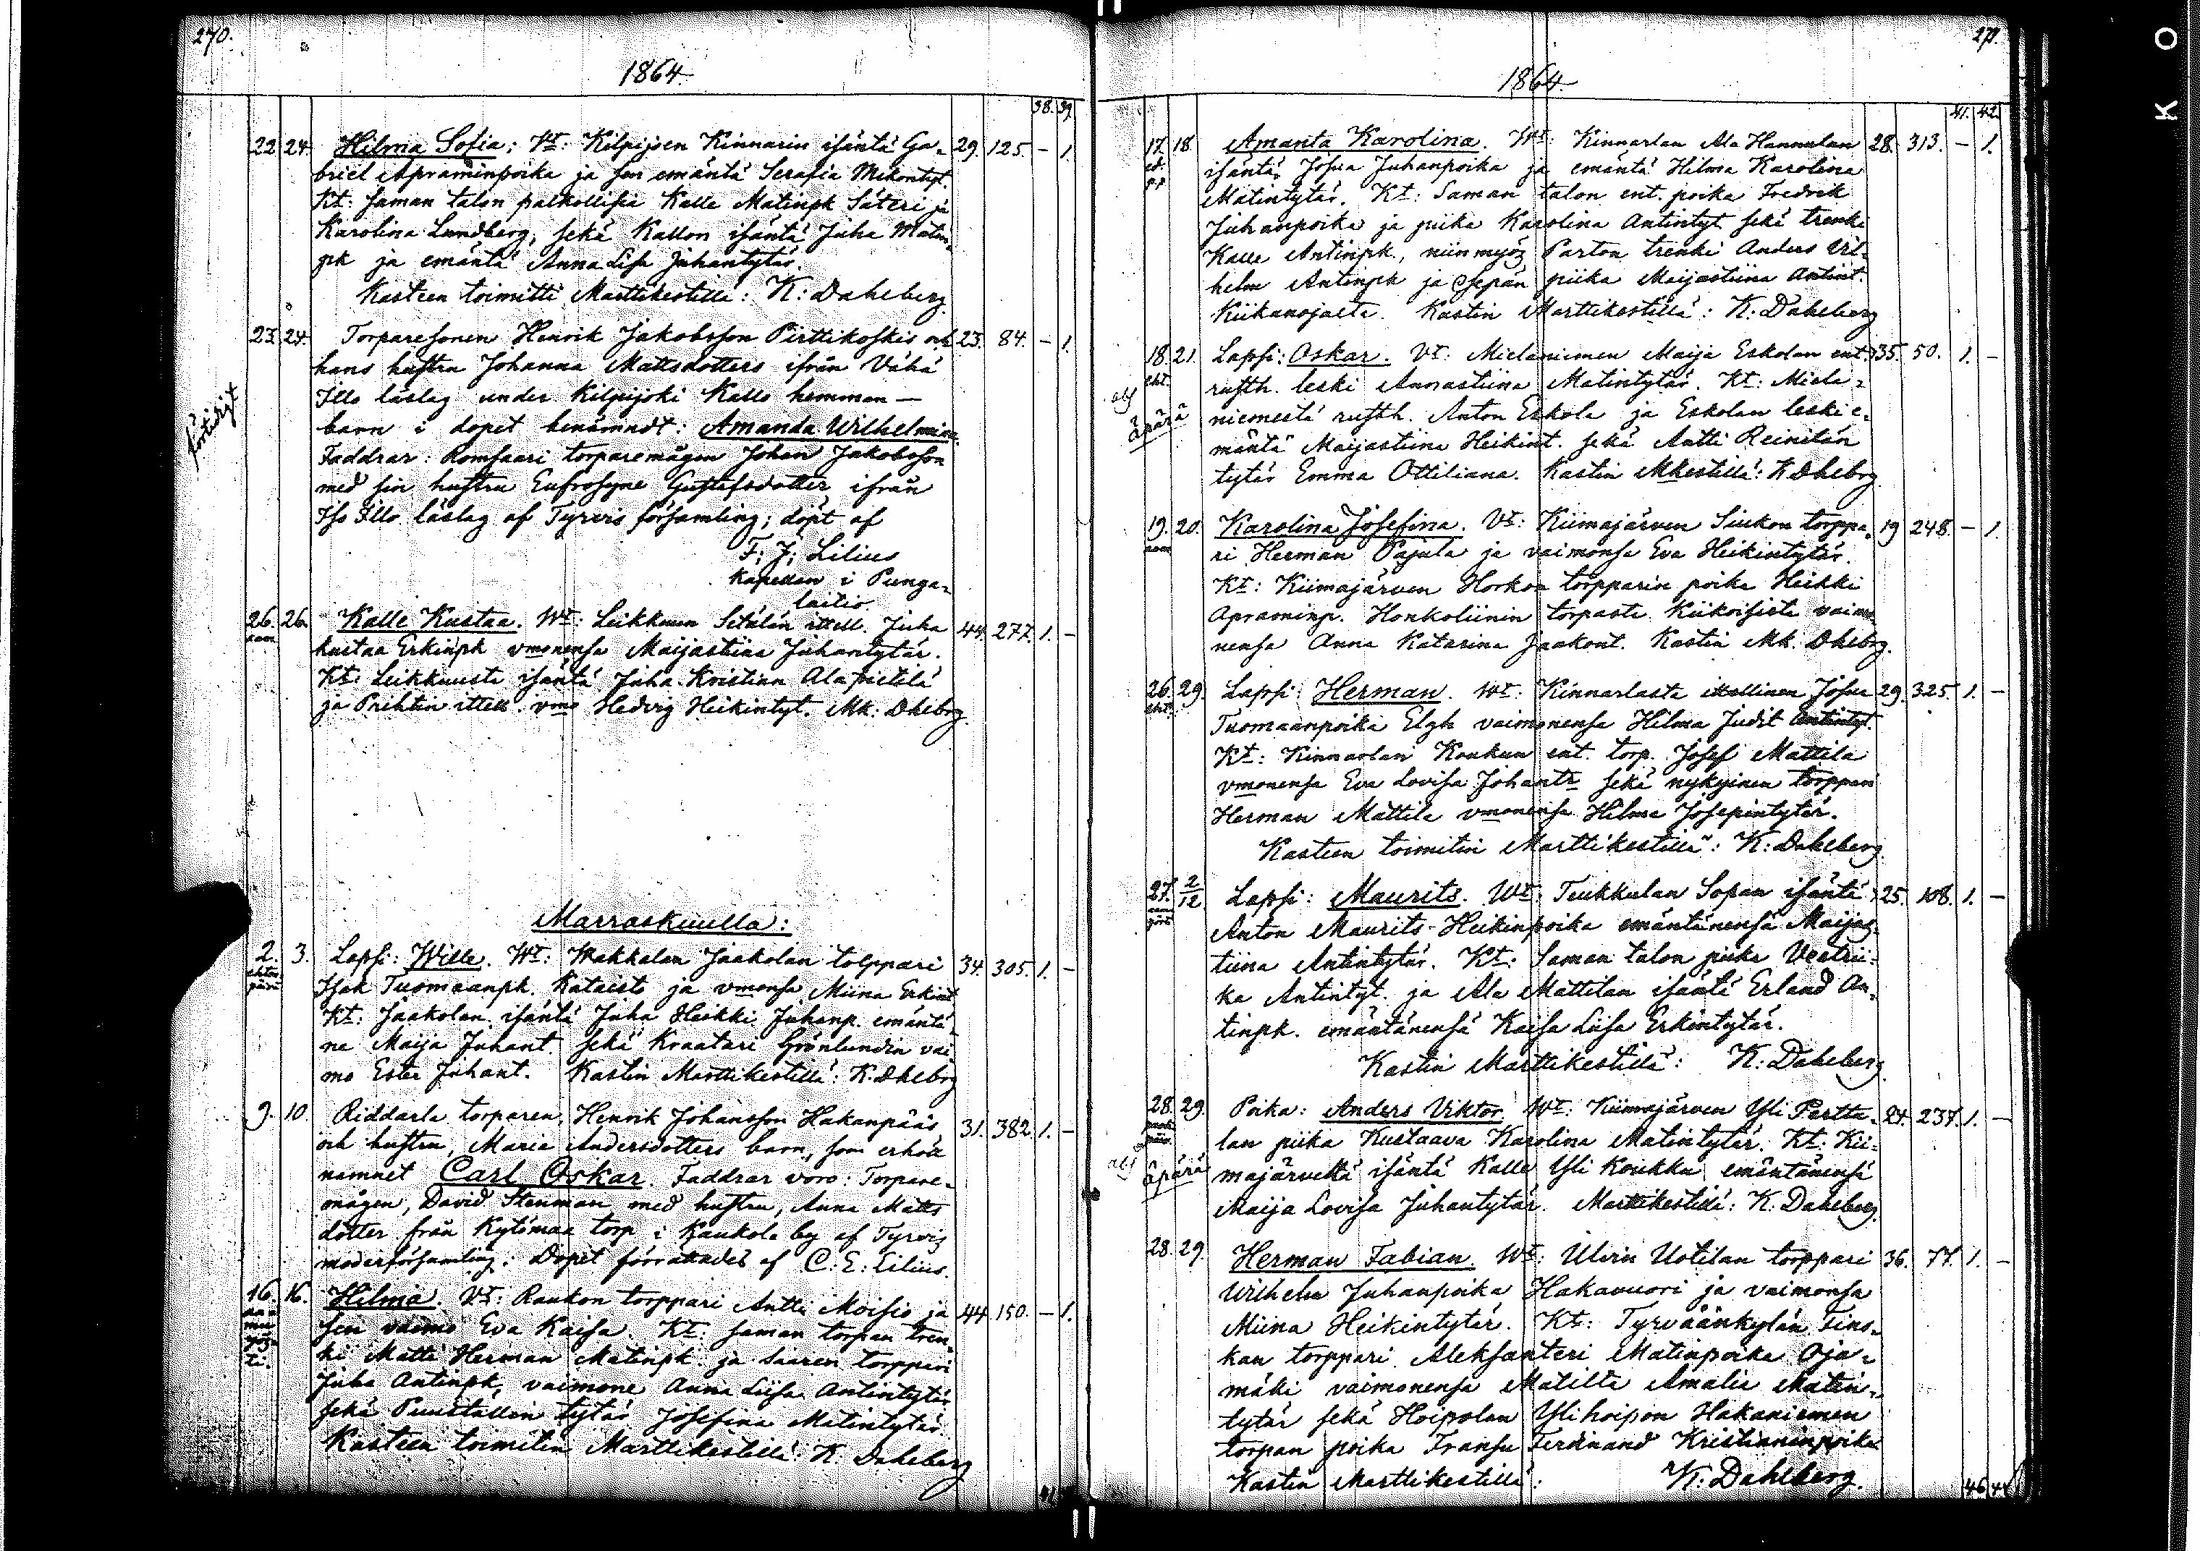 270.
1864.
38. 39.
22 24. Hilma Sofia; Vt: Kilpijoen Kinnarin isäntä Ga- 29. 125. - 1.
briel Apraminpoika ja sen emäntä Serafia Mikontyt.
Kt: saman talon palkollisia Kalle Matinpk Säteri ja
Karolina Lundberg, sekä Kallon isäntä Juha Matin-
pk ja emäntä Anna Lisa Juhantytär.
Kasteen toimitti Marttikestillä: K: Dahlberg.
23. 24. Torparesonen Henrik Jakobsson Pirttikoskis och 23. 84. - 1.
hans hustru Johanna Mattsdotters ifrån Vähä
Illo läslag under Kilpijoki Kallo hemman —
barn i dopet benämndt: Amanda Wilhelmina.
Faddrar: Romsaari torparemågen Johan Jakobsson
med sin hustru Eufrosyne Gustafsdotter ifrån
Iso Illo läslag af Tyrvis församling; döpt af
F: J: Lilius
Kapellan i Punga-
laitio.
26. 26. Kalle Kustaa. Wt: Leikkuun Setälän ittell. Juha 44. 277. 1. -
kustaa Erkinpk vmonensa Maijastiina Juhantytär.
Kt: Leikkuusta isäntä Juha Kristian Alapietilä
ja Prihtin ittell. vmo Hedvig Heikintyt. Mk: Dhlbrg.
Marraskuulla:
2. 3. Lapsi: Wille. Wt: Wakkalan Jaakolan torppari 34. 305. 1. -
Isak Tuomaanpk. Kataisto ja vmonsa Miina Erkint
Kt: Jaakolan isäntä Juha Heikki Juhanp. emäntä-
ne Maija Juhant. sekä Kraatari Grönlundin vai
mo Ester Juhant. Kastin Marttikestillä: K. Dhlbrg
9. 10. Riddarla torparen, Henrik Johansson Hakanpääs 31. 382. 1. -
och hustru, Maria Andersdotters barn, som erhöll
namnet Carl Oskar. Faddrar voro: Torpare-
mågen, David Stenman med hustru, Anna Matts
dotter från Kytömaa torp i Kaukola by af Tyrvis
moderförsamling: Dopet förrättades af C: E: Lilius.
16. 16. Hilma. Vt: Raukon torppari Antti Moisio ja 44 150. - 1.
sen vaimo Eva Kaisa. Kt: saman torpan tren-
ki Matti Herman Matinpk ja Saaren torppari
Juha Antinpk, vaimone Anna Liisa Antintytär
sekä Puustallin tytär Josefina Matintytär
Kasteen toimitin Marttikestillä: K. Dahlberg
41.
271.
1864
41. 42.
17. 18. Amanta Karolina. Wt: Kinnarlan Ala Hannulan 28. 313. - 1.
isäntä, Josua Juhanpoika ja emäntä Hilma Karolina
Matintytär. Kt: Saman talon ent. poika Fredrik
Juhanpoika ja piika Karolina Antintyt sekä trenki
Kalle Antinpk, niinmyöz Parton trenki Anders Vil-
helm Antinpk ja Sepän piika Maijastiina Antint.
Kiikanojalta. Kastin Marttikestillä: K: Dahlberg
18. 21. Lapsi: Oskar. Vt: Mielaniemen Maija Eskolan ent. 35. 50. 1. -
eht.
rusth. leski Annastiina Matintytär. Kt: Miela-
äpärä niemestä rusth. Anton Eskola ja Eskolan leski e-
mäntä Maijastiina Heikint. sekä Antti Reinilän
tytär Emma Ottiliana. Kastin Mkestillä: K Dhlbrg
19. 20. Karolina Josefina. Vt: Kiimajärven Siukon torppa- 19 248. - 1.
ri Herman Pajula ja vaimonsa Eva Heikintytär.
Kt: Kiimajärven Horkon torpparin poika Heikki
Apraminp. Honkoliinin torpasta. Kiikoisista vaimo
nensa Anna Katarina Jaakont. Kastin Mk. Dhlbrg.
26. 29. Lapsi: Herman. Wt: Kinnarlasta itsellinen Josua 29. 325. 1. -
eht.
Tuomaanpoika Elgh vaimonensa Hilma Judit Antintyt.
Kt: Kinnarlan Koukun ent. torp. Josef Mattila
vmonensa Eva Lovisa Johantr sekä nykyinen torppari
Herman Mattila vmonensa Hilma Josepintytär.
Kasteen toimitin Marttikestillä: K: Dahlberg.
27. 2/12 Lapsi: Maurits. Wt: Teukkulan Sopan isäntä 25. 108. 1. -
Anton Maurits Heikinpoika emäntänensä Maijas-
tiina Antintytär. Kt: Saman talon piika Vestrii-
ka Antintyt. ja Ala Mattilan isäntä Erland An-
tinpk. emäntänensä Kaisa Liisa Erkintytär.
Kastin Marttikestillä: K: Dahlberg.
28. 29. Poika: Anders Viktor. Wt: Kiimajärven Yli Pertti- 24. 237. 1. -
lan piika Kustaava Karolina Matintytär. Kt: Kii-
äpärä majärveltä isäntä Kalle Yli Koukku emäntänensä
Maija Lovisa Juhantytär. Marttikestillä: K. Dahlberg.
28. 29. Herman Fabian. Wt: Ulvin Uotilan torppari 36. 77. 1. -
Wilhelm Juhanpoika Hakavuori ja vaimonsa
Miina Heikintytär. Kt: Tyrväänkylän Tins-
kan torppari Aleksanteri Matinpoika Oja-
mäki vaimonensa Matilta Amalia Matin-
tytär sekä Hoipolan Ylihoipon Hakaniemen
torpan poika Fransu Ferdinand Kristianinpoika
Kastin Marttikestillä: K: Dahlberg.